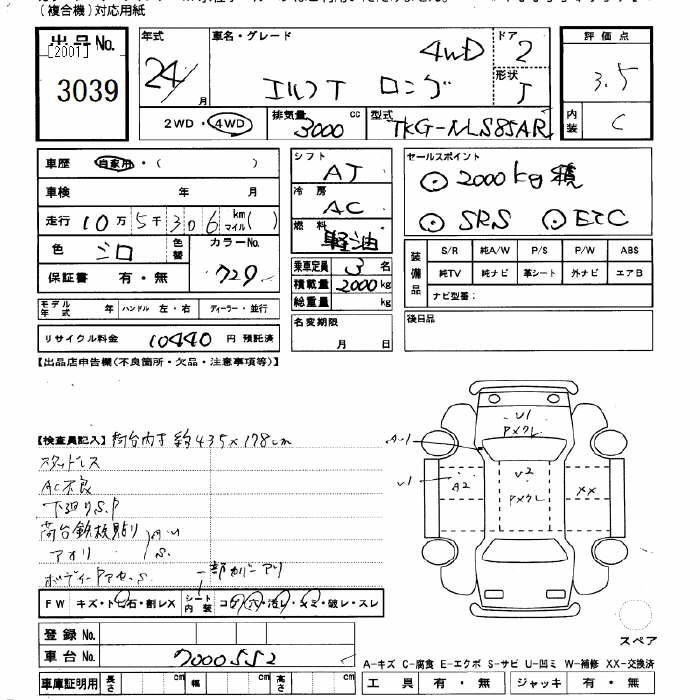 (複合機)対応用紙
出品No.
[2001]
3039
年式
24/
月
車名・グレード
4WD
エルフT ロング
ドア
2
形状
T
2WD・4WD
排気量
3000
cc
型式
TKG-NLS85AR
評価点
3.5
内装
C
車歴 自家用・( )
車検 年 月
走行 10万5千306 km マイル( )
色 シロ
色替
カラーNo.
729
保証書 有・無
モデル年式 年 ハンドル 左・右 ディーラー・並行
リサイクル料金 10440 円 預託済
シフト
AT
冷房
AC
燃料
軽油
乗車定員 3 名
積載量 2000 kg
総重量 kg
名変期限
月 日
セールスポイント
⊙ 2000kg積
⊙ SRS ⊙ ETC
装備品
S/R 純A/W P/S P/W ABS
純TV 純ナビ 革シート 外ナビ エアB
ナビ型番:
後日品
【出品店申告欄(不良箇所・欠品・注意事項等)】
【検査員記入】 荷台内寸 約435×178cm
スタッドレス
AC不良
下廻りS.P
荷台鉄板貼り
アオリ
S.
一部カバーアリ
FW キズ・トビ石・割レX
シート内装
コゲ・穴・汚レ・シミ・破レ・スレ
登録No.
車台No. 7000552
車庫証明用 長さ cm 幅 cm 高さ cm
A-1
U1
Pメクレ
U1
A2
U2
PメクレXX
スペア
A-キズ C-腐食 E-エクボ S-サビ U-凹ミ W-補修 XX-交換済
工具 有・無 ジャッキ 有・無